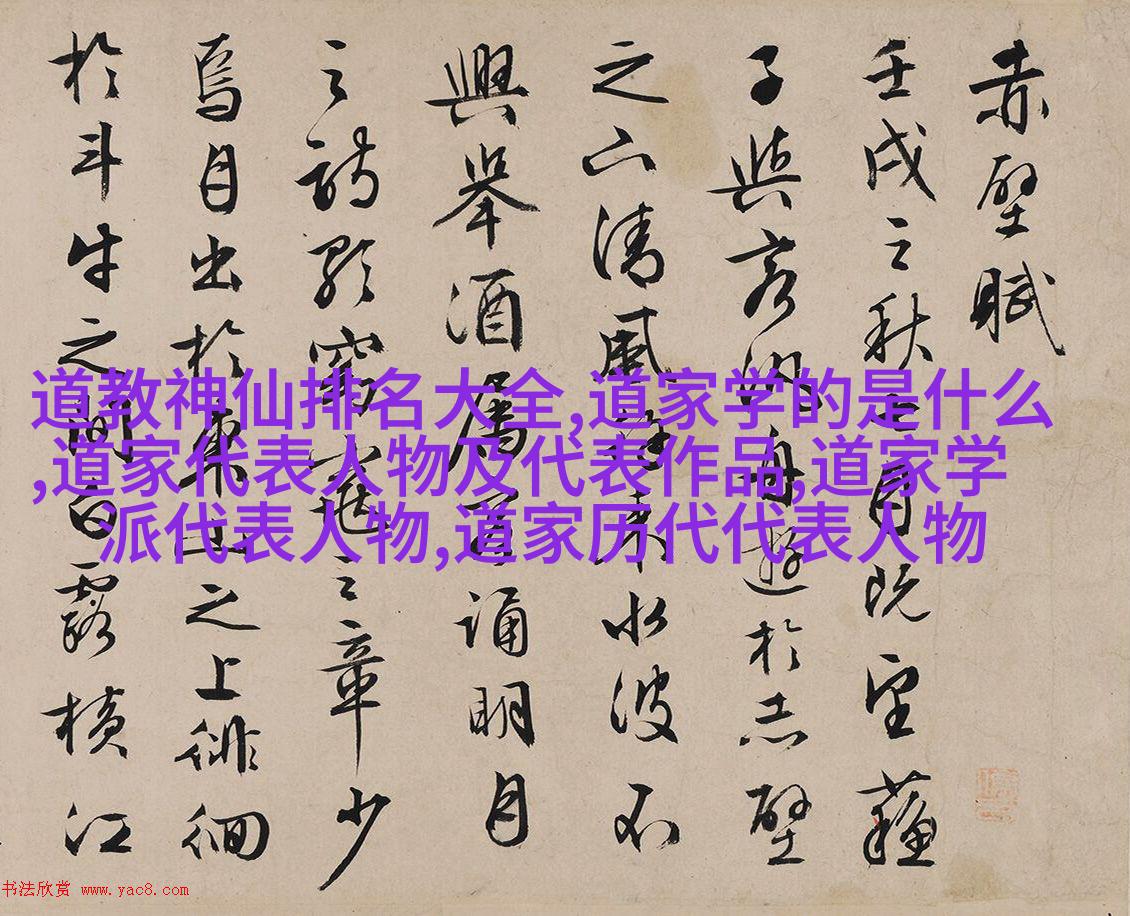 赤壁賦
壬戌之秋七月既望蘇
子與客泛舟遊於赤壁
之下清風徐來水波不
興舉酒屬誦明月
之詩歌窈窕之章少
焉月出於東山之上徘徊
於斗牛之間白露橫江
道教神仙排名大全,道家学的是什么
,道家代表人物及代表作品,道家学
派代表人物,道家历代代表人物
书法欣赏 www.yac8.com